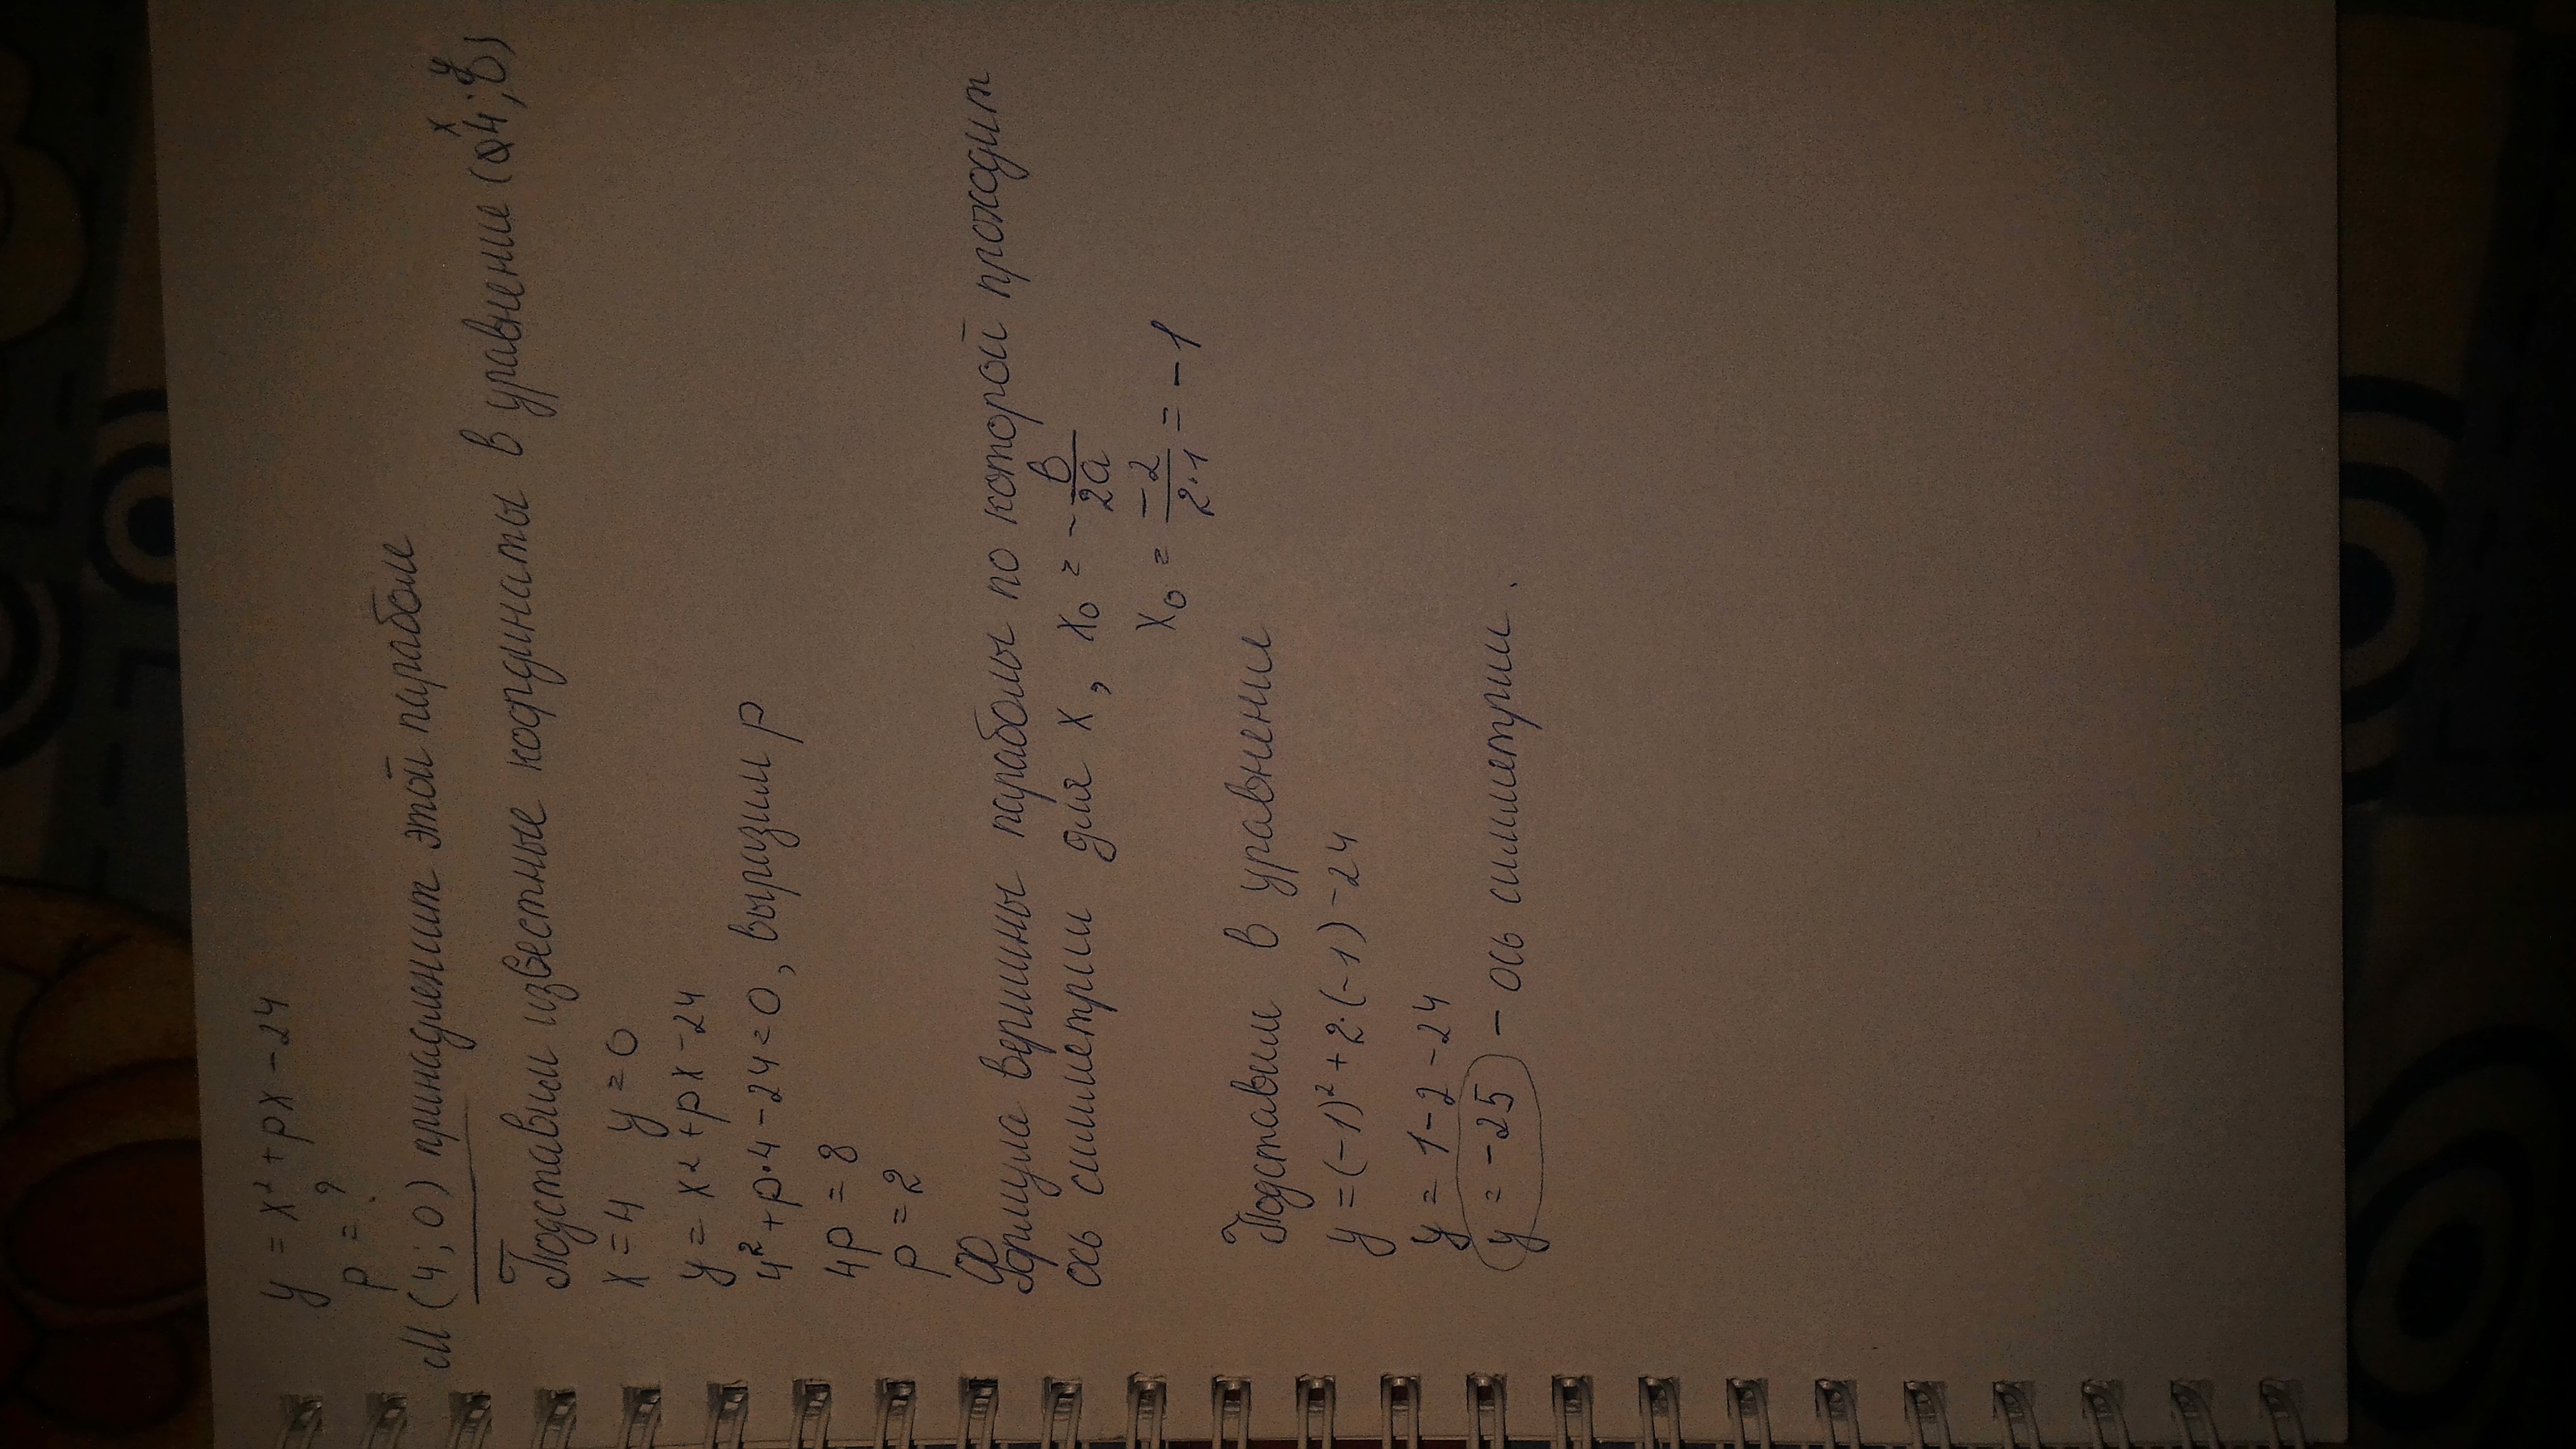 y = x² + px - 24
p = ?
М (4; 0) принадлежит этой параболе
Подставим известные кординаты в уравнение (4; )
x y
x = 4 y = 0
y = x² + px - 24
4² + p·4 - 24 = 0, выразим p
4p = 8
p = 2
Формула вершины параболы по которой проходит
ось симметрии для x, x₀ = - в/2a
x₀ = -2/2·1 = -1
Подставим в уравнение
y = (-1)² + 2·(-1) - 24
y = 1 - 2 - 24
y = -25 - ось симметрии.